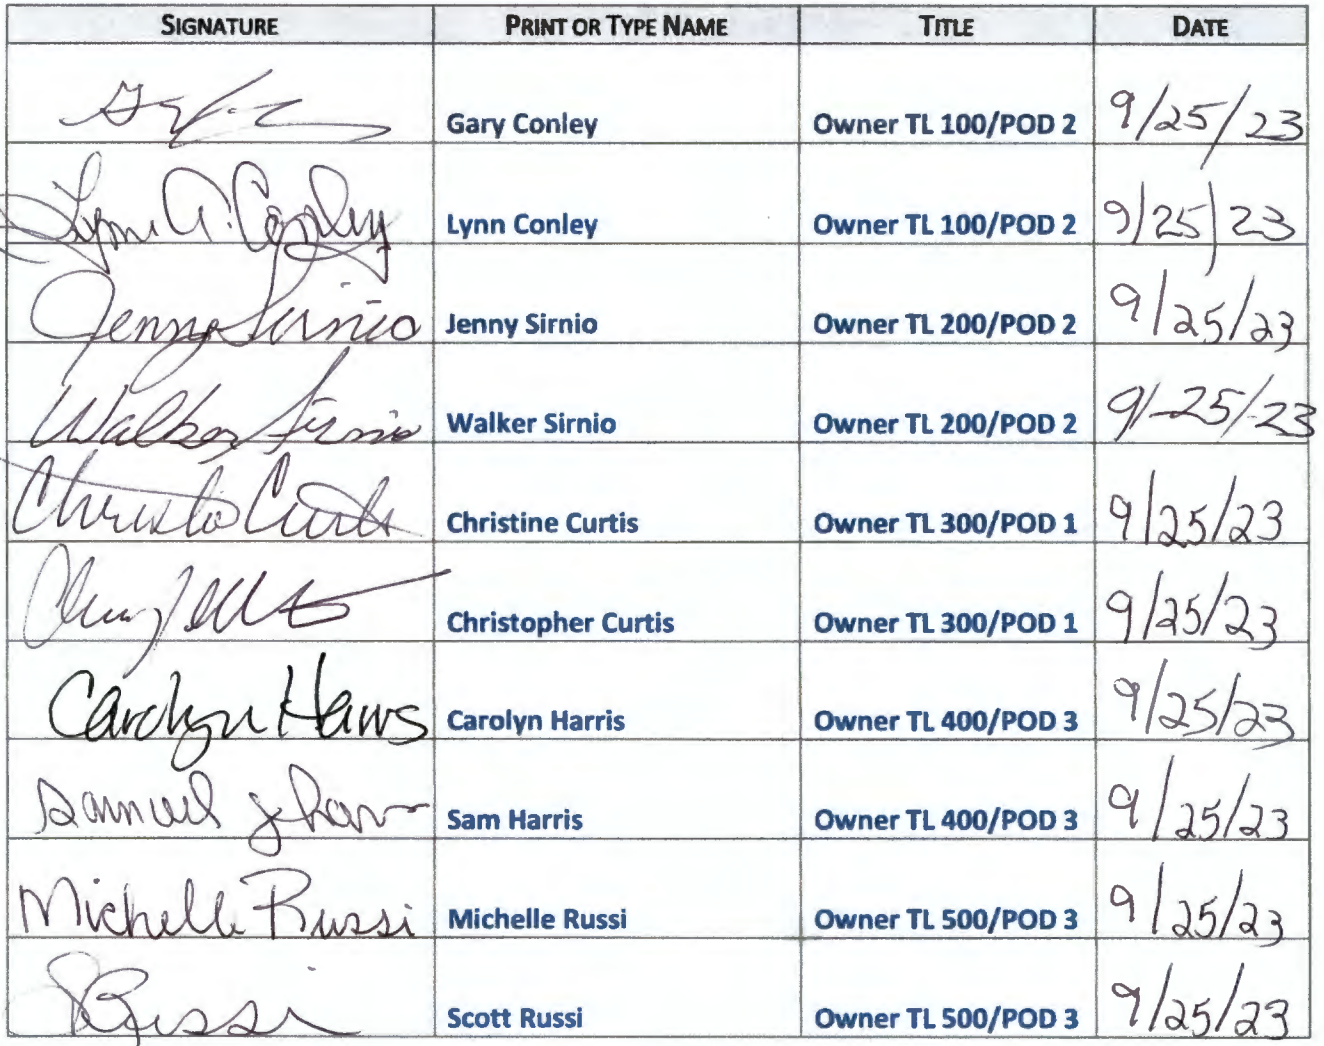 SIGNATURE PRINT OR TYPE NAME TITLE DATE
Gary Conley Owner TL 100/POD 2 9/25/23
Lynn A. Conley Lynn Conley Owner TL 100/POD 2 9/25/23
Jenny Sirnio Jenny Sirnio Owner TL 200/POD 2 9/25/23
Walker Sirnio Walker Sirnio Owner TL 200/POD 2 9/-25/23
Curtis Christine Curtis Owner TL 300/POD 1 9/25/23
Christopher Curtis Owner TL 300/POD 1 9/25/23
Carolyn Harris Carolyn Harris Owner TL 400/POD 3 9/25/23
Samuel Sam Harris Owner TL 400/POD 3 9/25/23
Michelle Russi Michelle Russi Owner TL 500/POD 3 9/25/23
SRussi Scott Russi Owner TL 500/POD 3 9/25/23